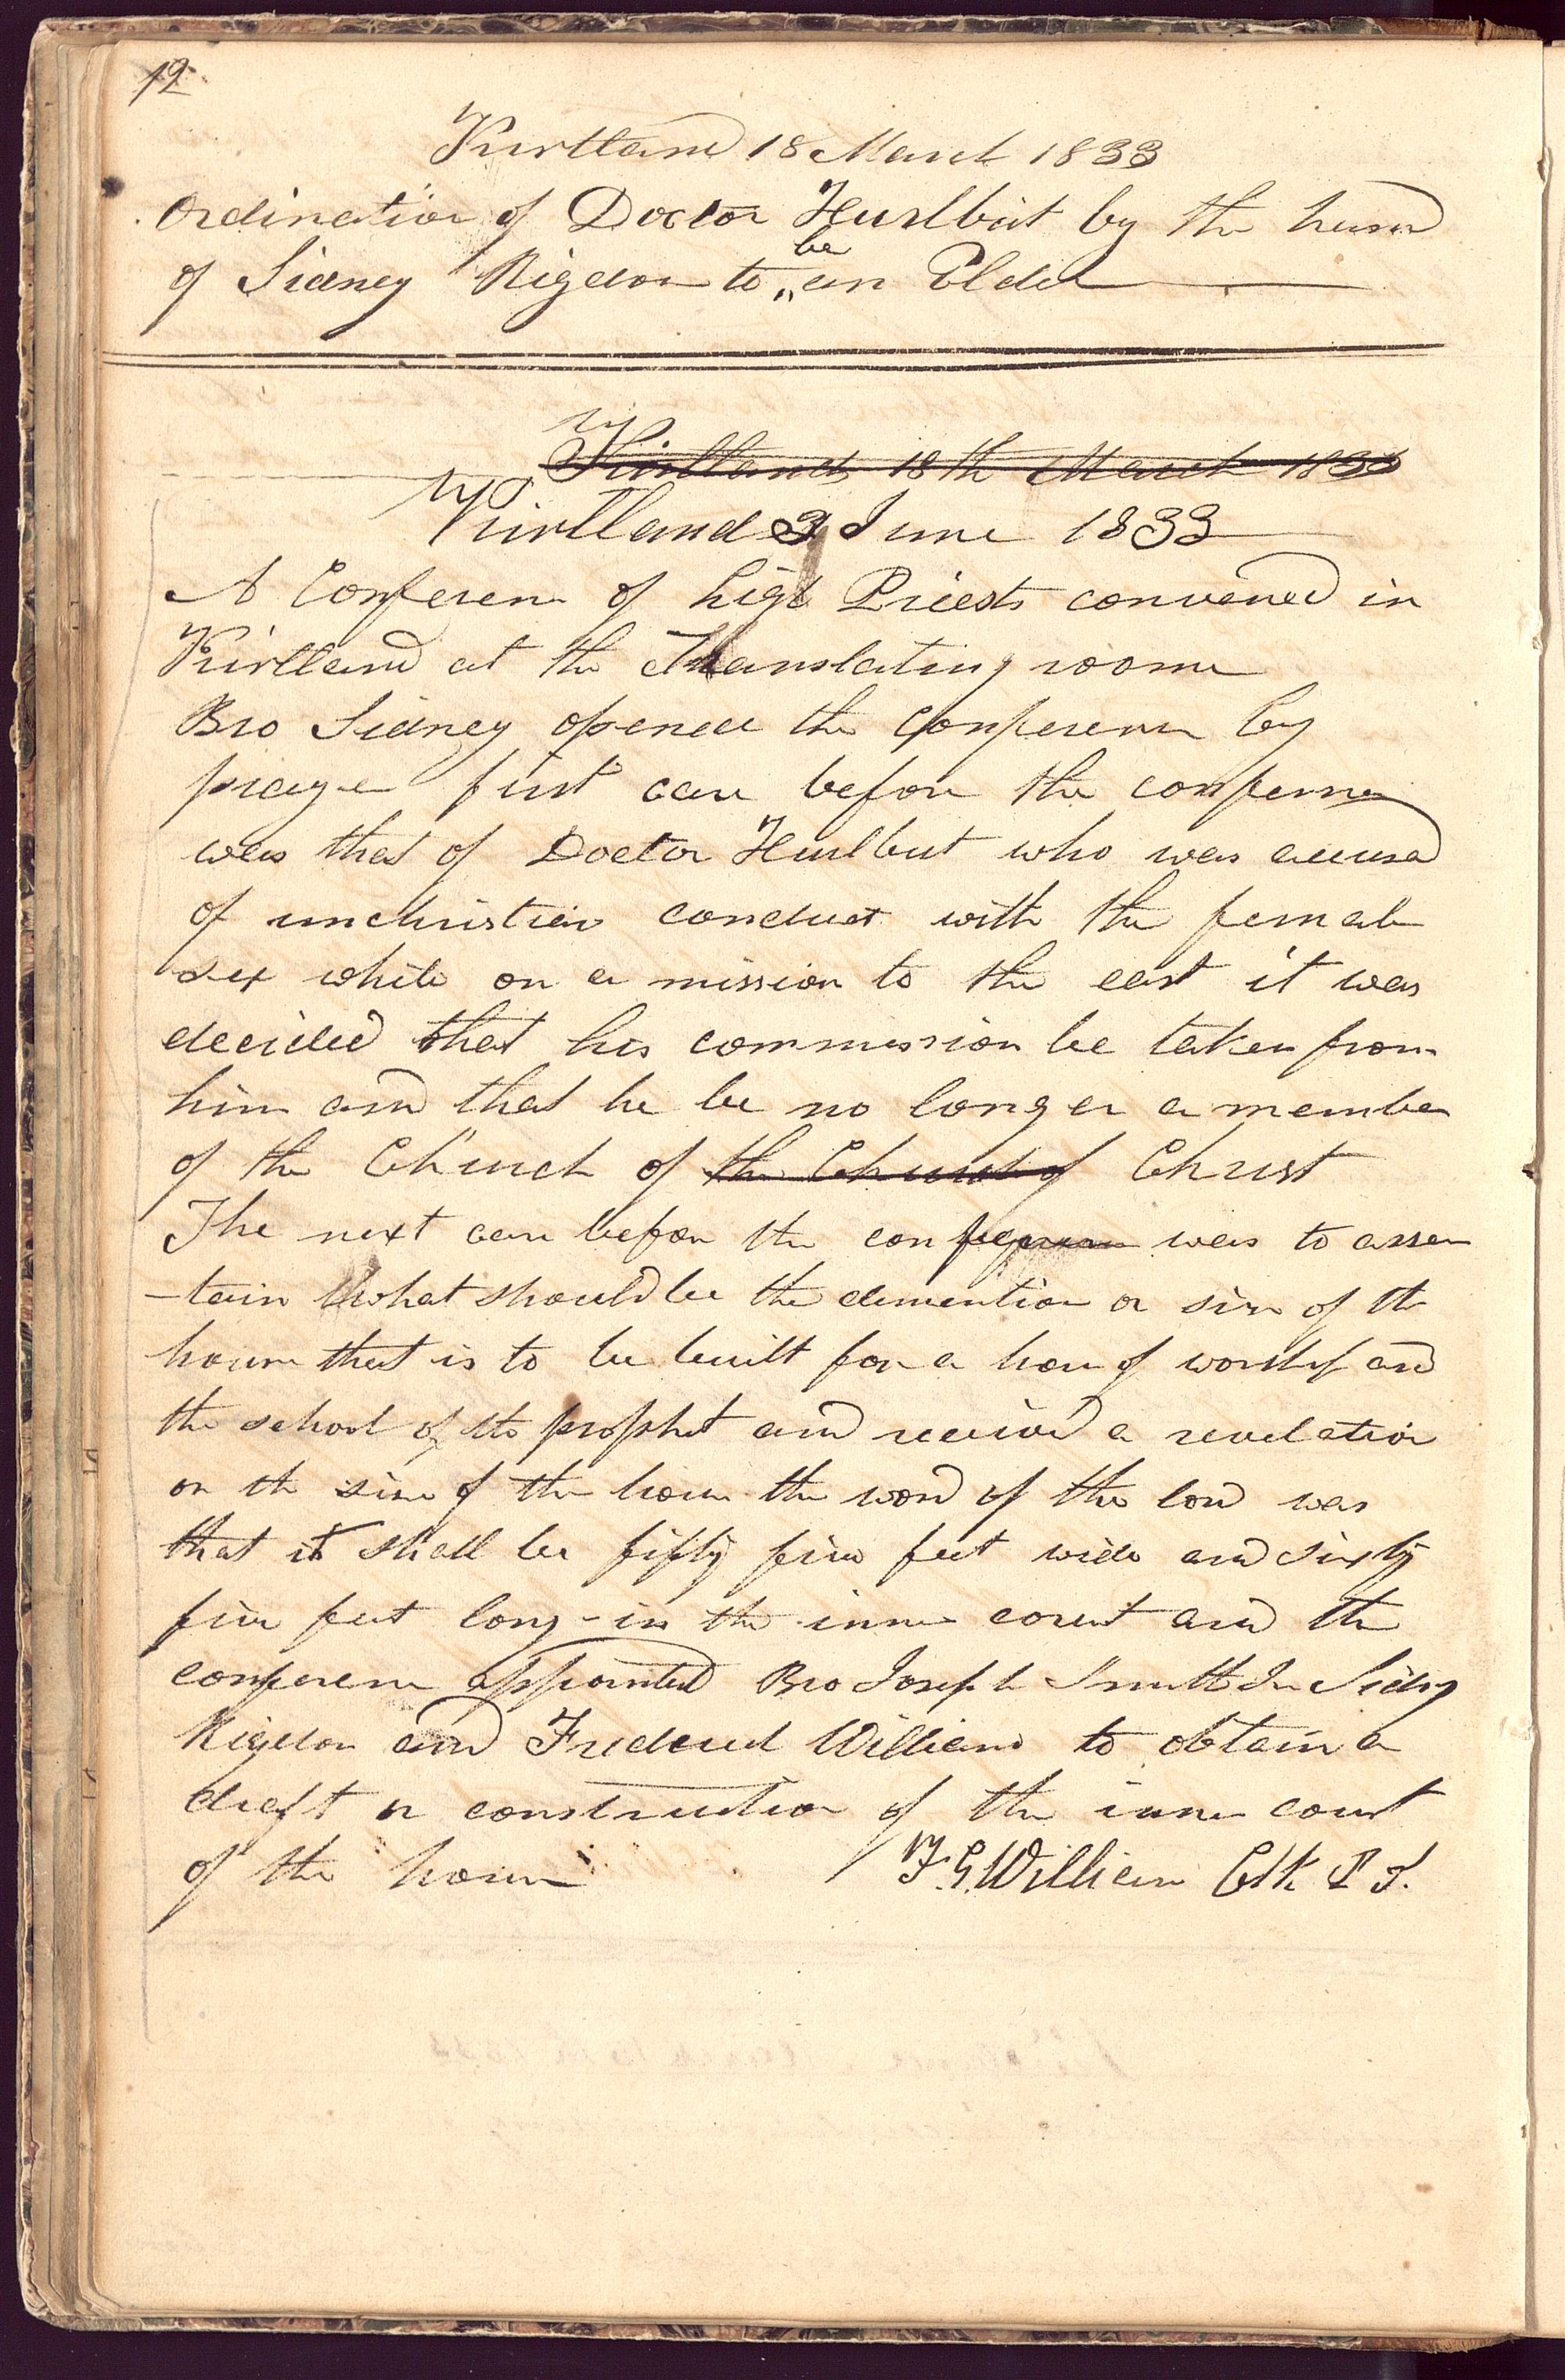 12
Kirtland 18 March 1833
Ordination of Doctor Hurlbut by the hand
be
of Sidney Rigdon to " an Elder
Kirtland 18th March 1833
Kirtland 3 June 1833
A Conferen of high Priests convened in
Kirtland at the Translating room
Bro Sidney opened the Conferenc by
prayer first case before the conferenc
was that of Doctor Hurlbut who was accused
of unchristian conduct with the female
sex while on a mission to the east it was
decided that his commission be taken from
him and that he be no longer a member
of the Church of the Church of Christ
The next case before the conference was to asser
-tain what should be the demention or size of the
house that is to be built for a house of worship and
the school of the prophet and received a revelation
on the size of the house the word of the lord was
that it shall be fifty five feet wide and sixty
five feet long in the inner court and the
conferenc appointed Bro Joseph Smith Jr Sidny
Rigdon and Frederick Williams to obtain a
draft or construction of the inner court
of the house F. G. Williams Clk P. T.